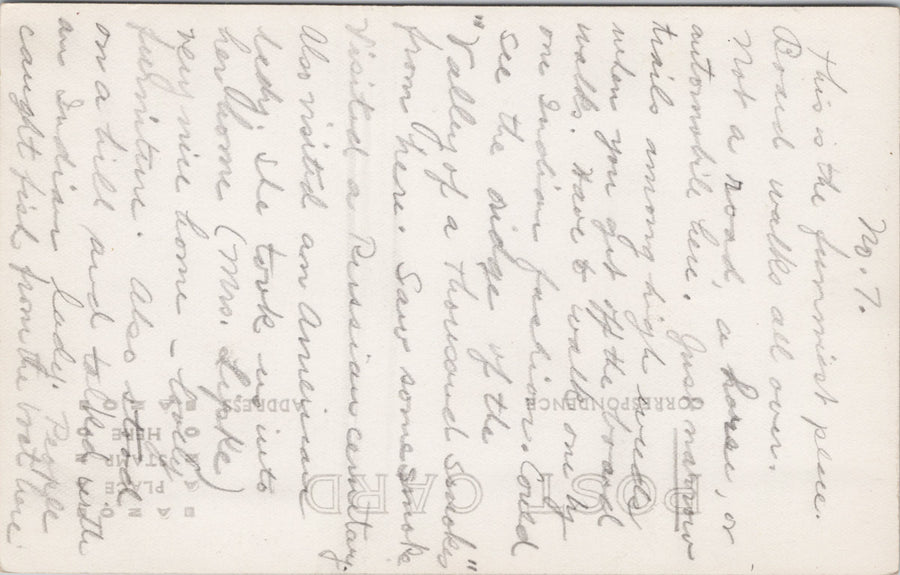 No. 7.
This is the funniest place.
Board walks all over.
Not a road, a horse, or
automobile here. Just narrow
trails among high weeds
when you get off the board
walks. Have to walk one by
one Indian fashion. Could
see the ridge of the
"Valley of a Thousand Smokes"
from here. Saw some smoke
Visited a Russian cemetary.
Also visited an American
lady; she took us into
her home (Mrs.
very nice home - lovely
furniture. Also stood
on a hill and talked with
an Indian lady. People
caught fish from the boat here
POST CARD
CORRESPONDENCE
ADDRESS
PLACE
STAMP
HERE